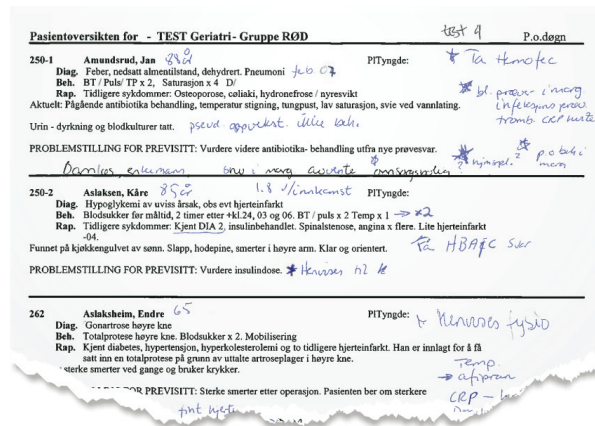 Pasientoversikten for - TEST Geriatri- Gruppe RØD test 4 P.o.døgn
250-1 Amundsrud, Jan 88 år PlTyngde: * Ta Hemofec
Diag. Feber, nedsatt almentilstand, dehydrert. Pneumoni feb 07
Beh. BT / Puls/ TP x 2, Saturasjon x 4 D/
Rap. Tidligere sykdommer: Osteoporose, cøliaki, hydronefrose / nyresvikt
* bl. prøver i morg
Aktuelt: Pågående antibiotika behandling, temperatur stigning, tungpust, lav saturasjon, svie ved vannlating.
infeksjons prøv.
tromb. CRP
Urin - dyrkning og blodkulturer tatt. pseud oppvekst. ikke beh.
PROBLEMSTILLING FOR PREVISITT: Vurdere videre antibiotika- behandling utfra nye prøvesvar.
p.o beh i
morg
enkemann, i morg avvente
250-2 Aslaksen, Kåre 85 år 1.8 v/innkomst PlTyngde:
Diag. Hypoglykemi av uviss årsak, obs evt hjerteinfarkt
Beh. Blodsukker før måltid, 2 timer etter +kl.24, 03 og 06. BT / puls x 2 Temp x 1 → x2
Rap. Tidligere sykdommer: Kjent DIA 2, insulinbehandlet. Spinalstenose, angina x flere. Lite hjerteinfarkt
-04. Få HBA1C svar
Funnet på kjøkkengulvet av sønn. Slapp, hodepine, smerter i høyre arm. Klar og orientert.
PROBLEMSTILLING FOR PREVISITT: Vurdere insulindose. * Henvises til
262 Aslaksheim, Endre 65 PlTyngde: Henvises fysio
Diag. Gonartrose høyre kne
Beh. Totalprotese høyre kne. Blodsukker x 2. Mobilisering
Rap. Kjent diabetes, hypertensjon, hyperkolesterolemi og to tidligere hjerteinfarkt. Han er innlagt for å få
satt inn en totalprotese på grunn av uttalte artroseplager i høyre kne.
Temp.
sterke smerter ved gange og bruker krykker.
→ afipran
FOR PREVISITT: Sterke smerter etter operasjon. Pasienten ber om sterkere
CRP -